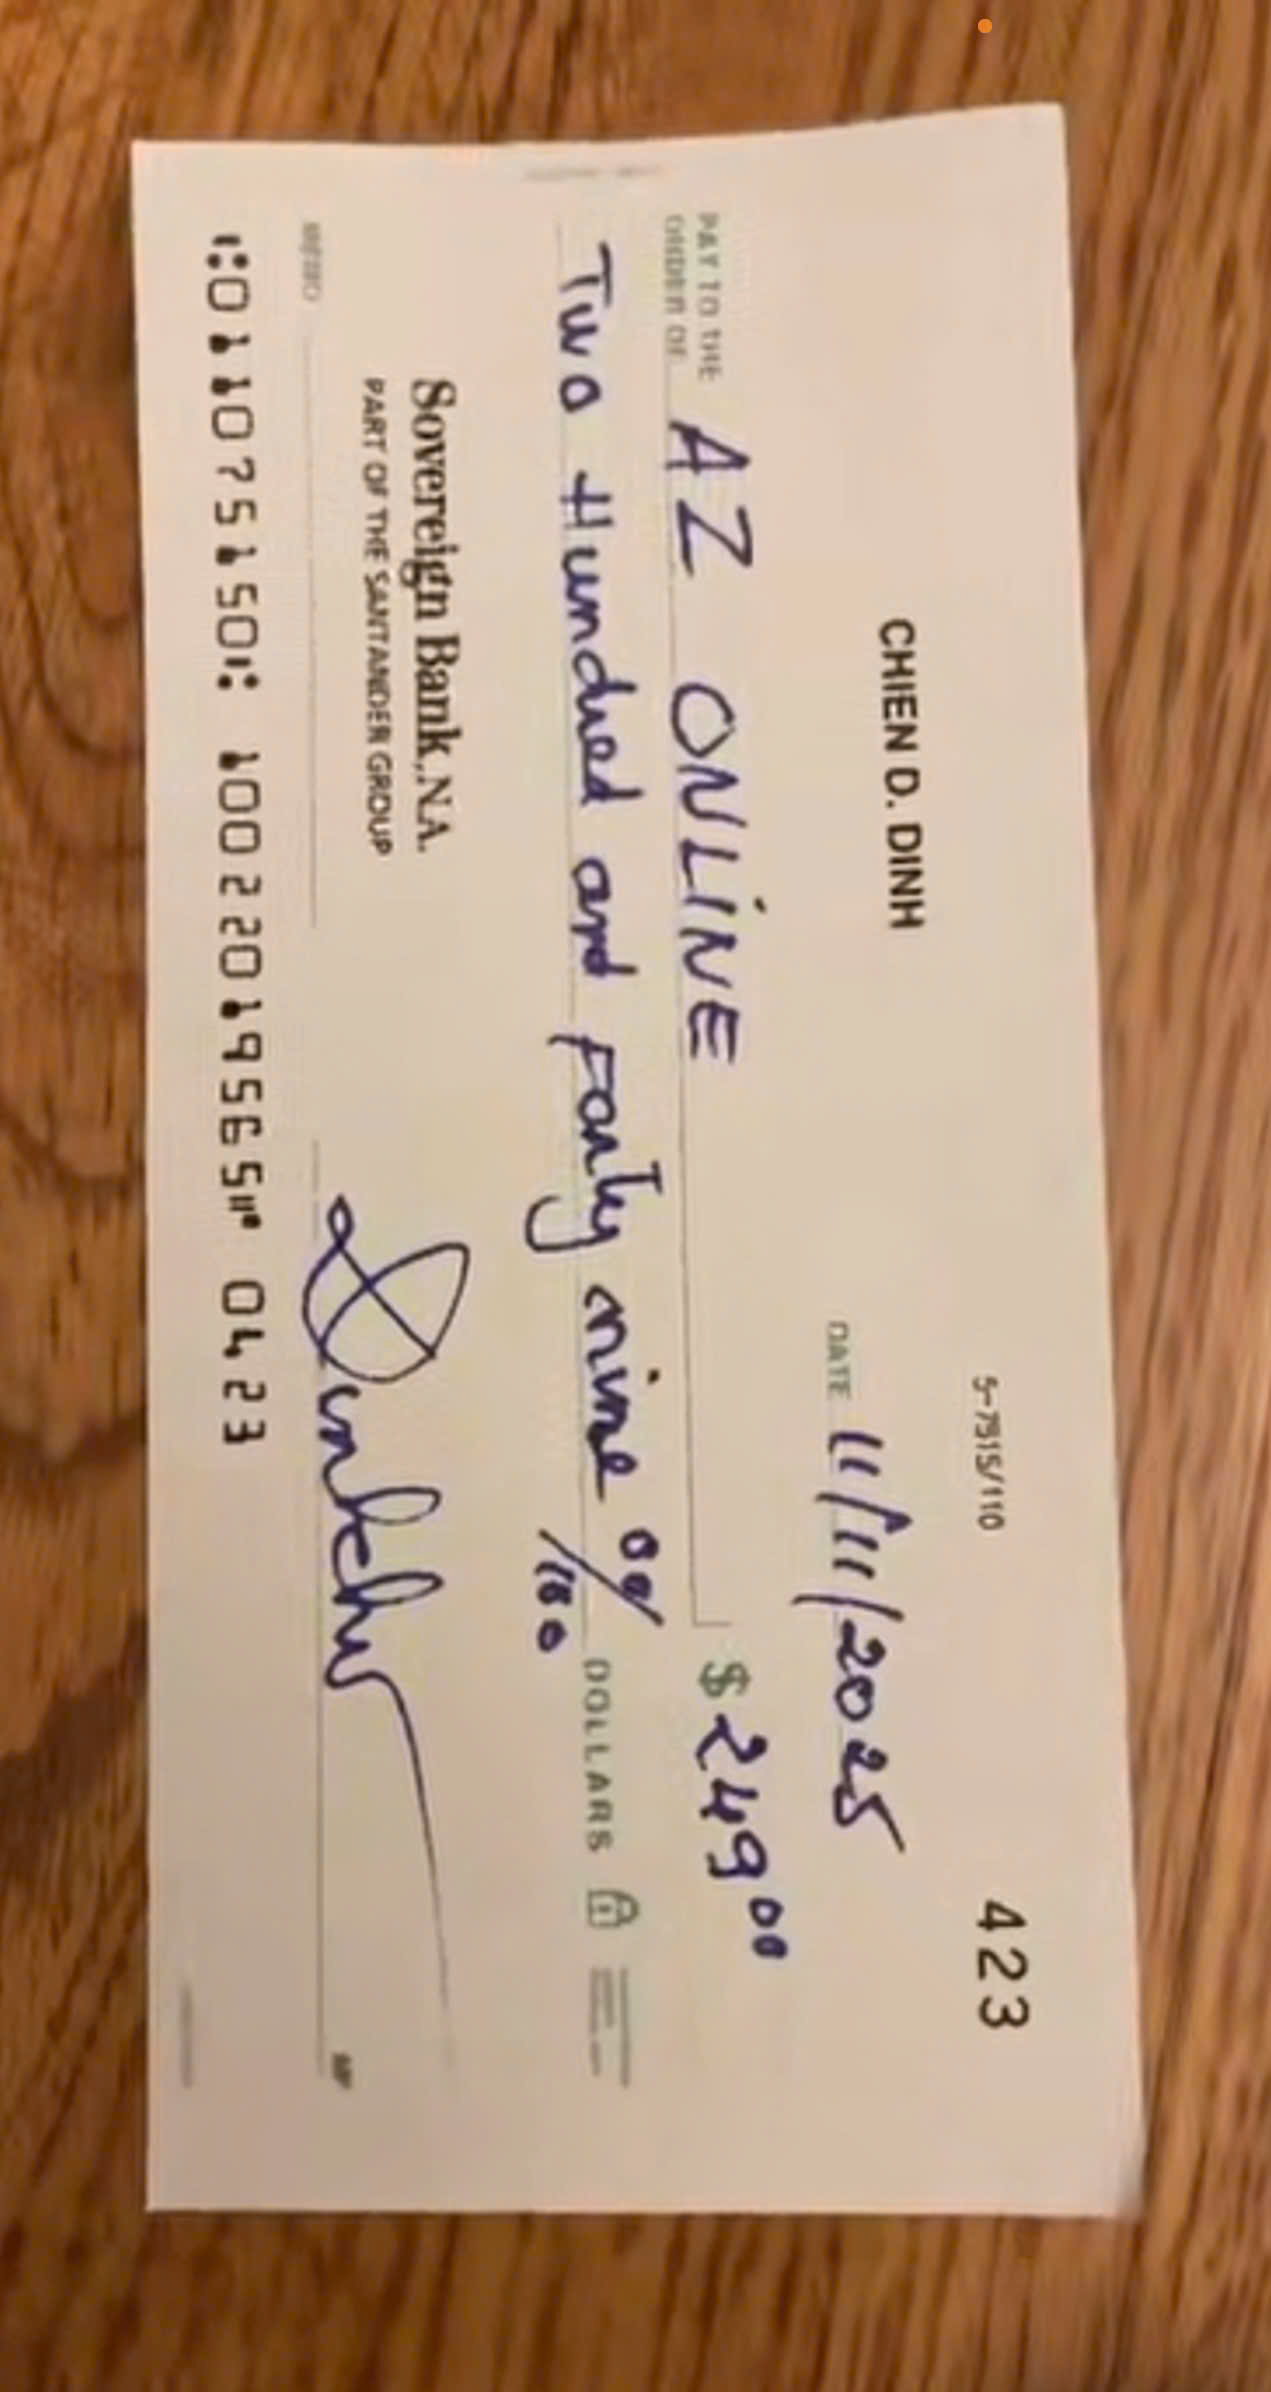 423
5-7515/110
CHIEN D. DINH
DATE 11/11/2025
PAY TO THE
ORDER OF AZ ONLINE $ 249 00
Two Hundred and Forty nine 00/100 DOLLARS
Sovereign Bank, N.A.
PART OF THE SANTANDER GROUP
MEMO
MP
⑆011075150⑆ 10022019565⑈ 0423